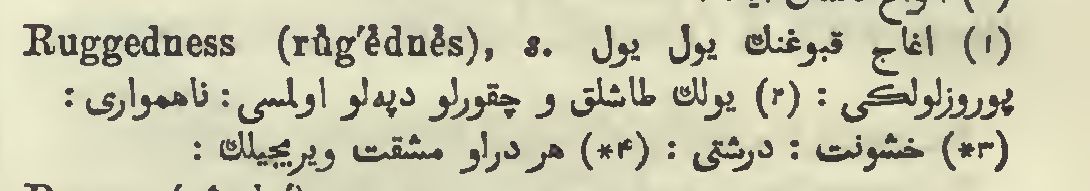 Ruggedness (rŭg´ĕdnĕs), s. (۱) اغاج قبوغنڭ یول یول
پوروزلولكی : (۲) یولڭ طاشلق و چقورلو دپه‌لو اولمسی : ناهمواری :
(*۳) خشونت : درشتی : (*۴) هر درلو مشقت ویریجیلك :